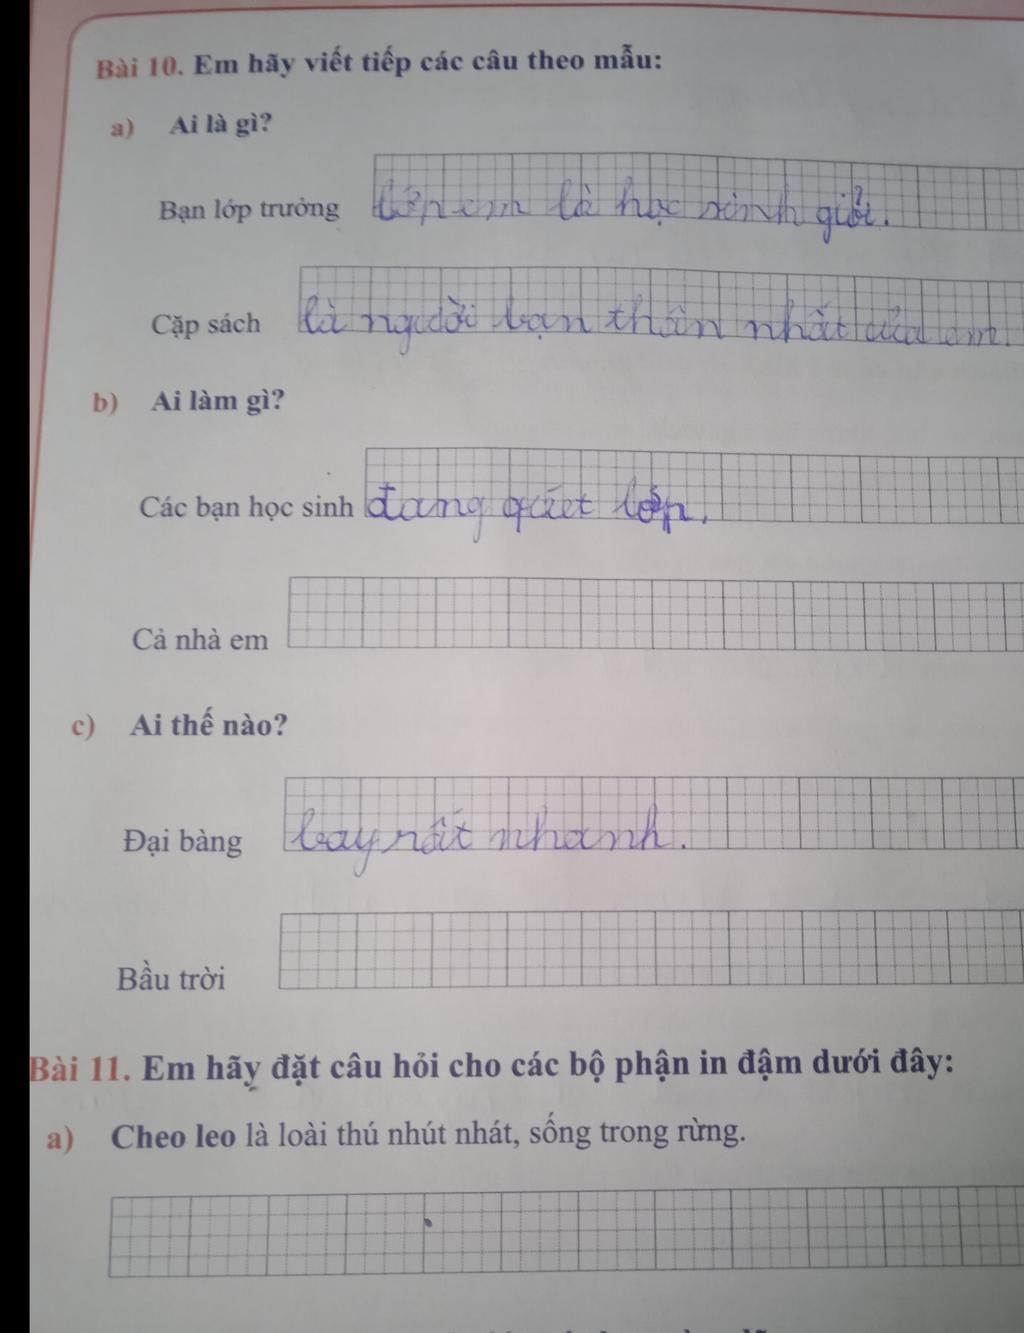 Bài 10. Em hãy viết tiếp các câu theo mẫu:
a) Ai là gì?
Bạn lớp trưởng lớp em là học sinh giỏi.
Cặp sách là người bạn thân nhất của em.
b) Ai làm gì?
Các bạn học sinh đang quét lớp.
Cả nhà em
c) Ai thế nào?
Đại bàng bay rất nhanh.
Bầu trời
Bài 11. Em hãy đặt câu hỏi cho các bộ phận in đậm dưới đây:
a) Cheo leo là loài thú nhút nhát, sống trong rừng.